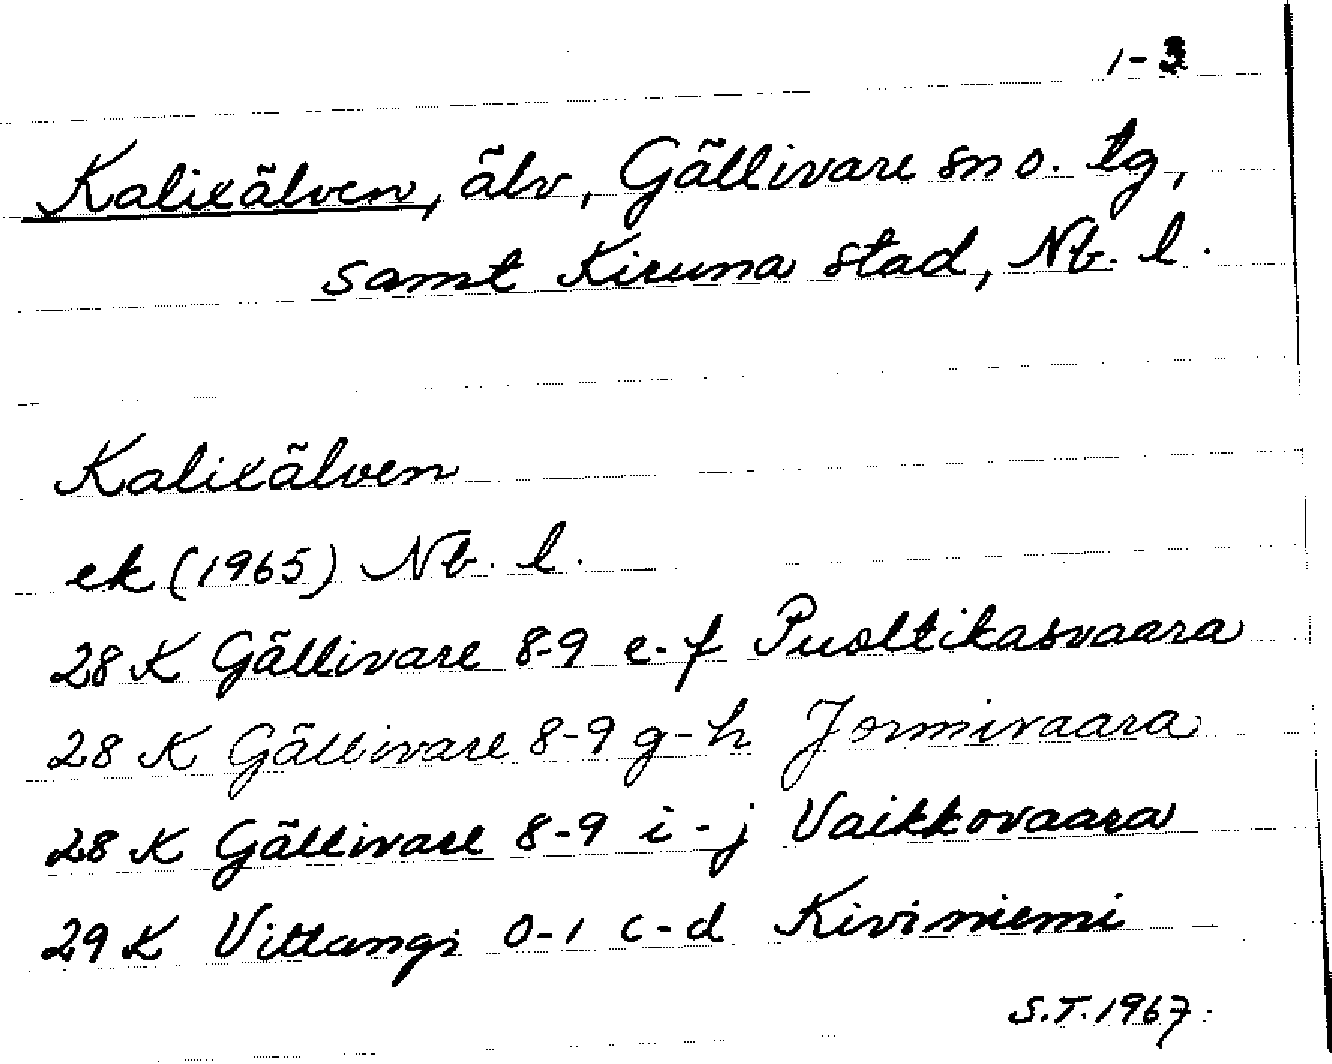 1-3
Kalixälven, älv, Gällivare sn o. tg,
samt Kiruna stad, Nb. l.
Kalixälven
ek (1965) Nb. l.
28 K Gällivare 8-9 e-f Puoltikasvaara
28 K Gällivare 8-9 g-h Jormivaara
28 K Gällivare 8-9 i-j Vaikkovaara
29 K Vittangi 0-1 c-d Kiviniemi
S.T. 1967.